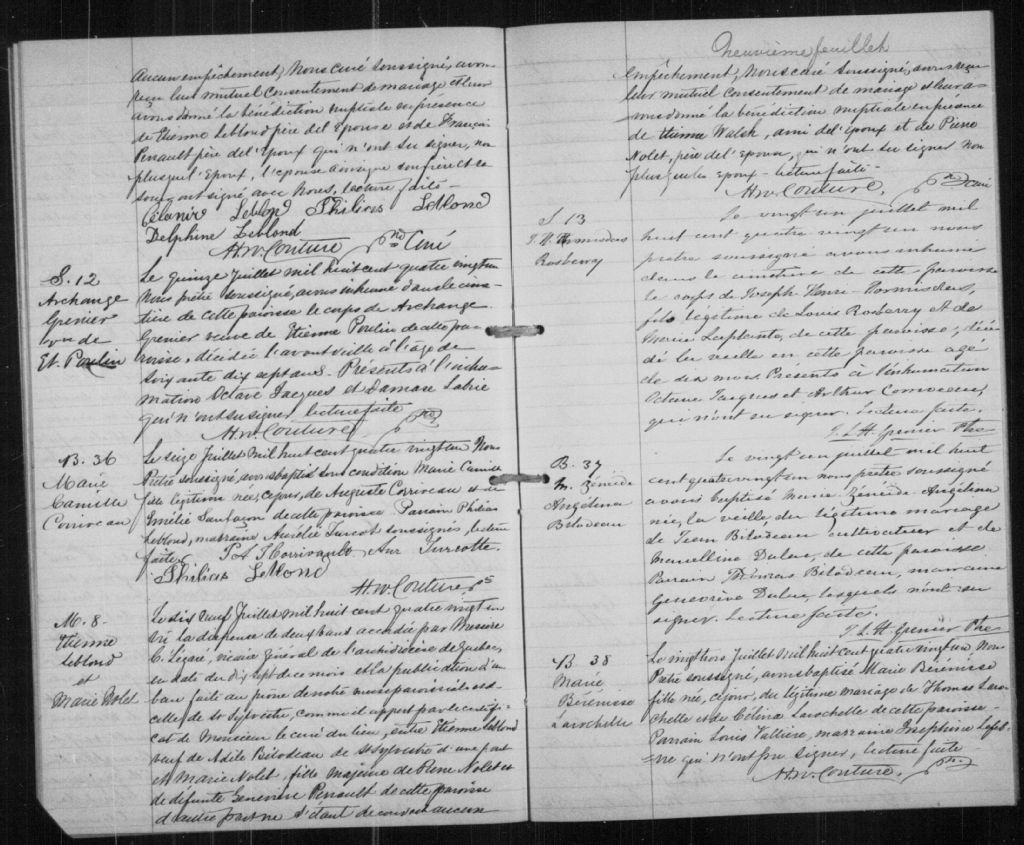 aucun empêchement, Nous curé soussigné, avons
reçu leur mutuel consentement de mariage et leur
avons donné la bénédiction nuptiale en présence
de Etienne Leblond père de l'Epouse et de François
Perrault père de l'Epoux qui n'ont su signer, non
plus que l'Epoux, l'épouse ainsi que
soussignés ont signé avec Nous, lecture faite -
Leblond Philias Leblond
Delphine Leblond
H.W. Couture, Ptre Curé
S. 12
Archange
Grenier
vve de
Et. Poulin
Le quinze Juillet mil huit cent quatre vingt un
Nous prêtre soussigné, avons inhumé dans le cime-
tière de cette paroisse le corps de Archange
Grenier veuve de Etienne Poulin de cette pa-
roisse, décédée l'avant veille à l'âge de
soixante dix sept ans. Présents à l'inhu-
mation Octave Jacques et Damase Labrie
qui n'ont su signer lecture faite
H.W. Couture, Ptre
B. 36
Marie
Camille
Corriveau
Le seize Juillet mil huit cent quatre vingt un Nous
Prêtre soussigné, avons baptisé sous condition Marie Camille
fille légitime née, ce jour, de Auguste Corriveau et de
Emélie de cette paroisse Parrain Philias
Leblond, marraine Aurélie Turcot soussignés, lecture
faite. Corrivault Aur Turcotte.
Philias Leblond
H.W. Couture, Ptre
M. 8.
Etienne
Leblond
et
Marie Nolet
Le dix neuf Juillet mil huit cent quatre vingt un
Vu la dispense de deux bans accordée par Messire
C. Légaré, vicaire général de l'archidiocèse de Québec,
en date du dix sept de ce mois et la publication d'un
ban faite au prône de notre messe paroissiale et de
celle de St Sylvestre, comme il appert par le certifi-
cat de Monsieur le curé du lieu, entre Etienne Leblond
veuf de Adèle Bilodeau de St Sylvestre d'une part
et Marie Nolet, fille majeure de Pierre Nolet et
de défunte Geneviève Perrault de cette paroisse
d'autre part ne s'étant découvert aucun
Neuvième feuillet
empêchement, Nous curé soussigné, avons reçu
leur mutuel consentement de mariage et leur a-
vons donné la bénédiction nuptiale en présence
de Etienne Walsh, ami de l'époux et de Pierre
Nolet, père de l'Epouse, qui n'ont su signer non
plus que les époux - lecture faite -
H.W. Couture, Ptre Curé
S. 13
J. H. Hormisdas
Rosberry
Le vingt un juillet mil
huit cent quatre vingt un nous
prêtre soussigné avons inhumé
dans le cimetière de cette paroisse
le corps de Joseph Henri Hormisdas,
fils légitime de Louis Rosberry et de
Marie Laplante, de cette paroisse, décé-
dé la veille en cette paroisse âgé
de dix mois. Présents à l'inhumation
Octave Jacques et Arthur Comodeau,
qui n'ont su signer. Lecture faite.
J. L. H. Grenier Ptre
B. 37
M. Zénéide
Angélina
Bilodeau
Le vingt un juillet mil huit
cent quatre vingt un nous prêtre soussigné
avons baptisé Marie Zénéide Angélina
née, la veille, du légitime mariage
de Jean Bilodeau cultivateur et de
Marcelline Dulac, de cette paroisse.
Parrain Thomas Bilodeau, marraine
Geneviève Dulac, lesquels n'ont su
signer. Lecture faite.
J. L. H. Grenier Ptre
B 38
Marie
Bérénise
Larochelle
Le vingt trois Juillet mil huit cent quatre vingt un Nous
Prêtre soussigné, avons baptisé Marie Bérénisse
fille née, ce jour, du légitime mariage de Thomas Laro-
chelle et de Célina Larochelle de cette paroisse -
Parrain Louis Vallière, marraine Joséphine Lefeb-
vre qui n'ont pu signer, lecture faite -
H.W. Couture, Ptre.